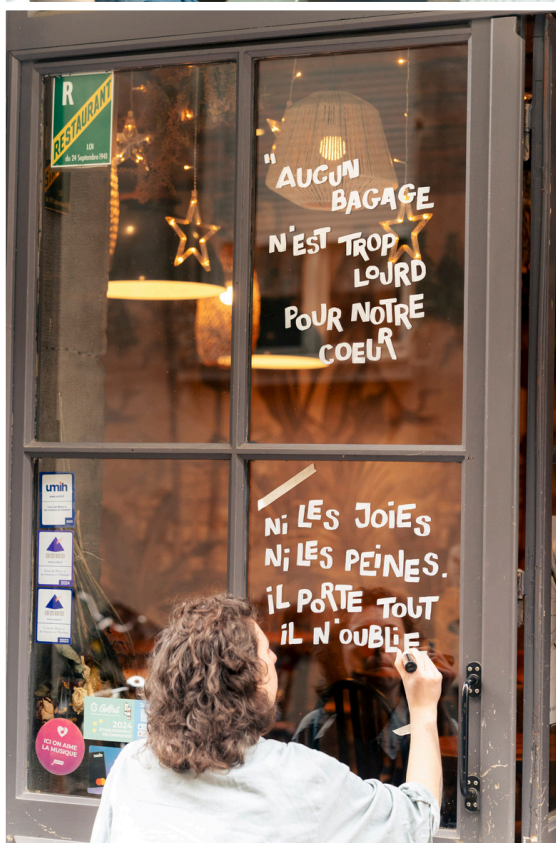 R
RESTAURANT
LOI
du 24 Septembre 1941
"AUCUN
BAGAGE
N'EST TROP
LOURD
POUR NOTRE
COEUR
NI LES JOIES
NI LES PEINES.
IL PORTE TOUT
IL N'OUBLIE
umih
2024
ICI ON AIME
LA MUSIQUE